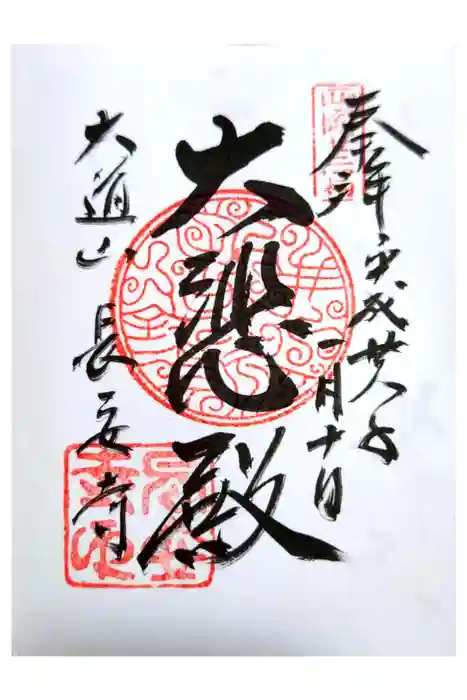 奉拝
平成廿八年
一月十日
大悲殿
大道山 長安寺